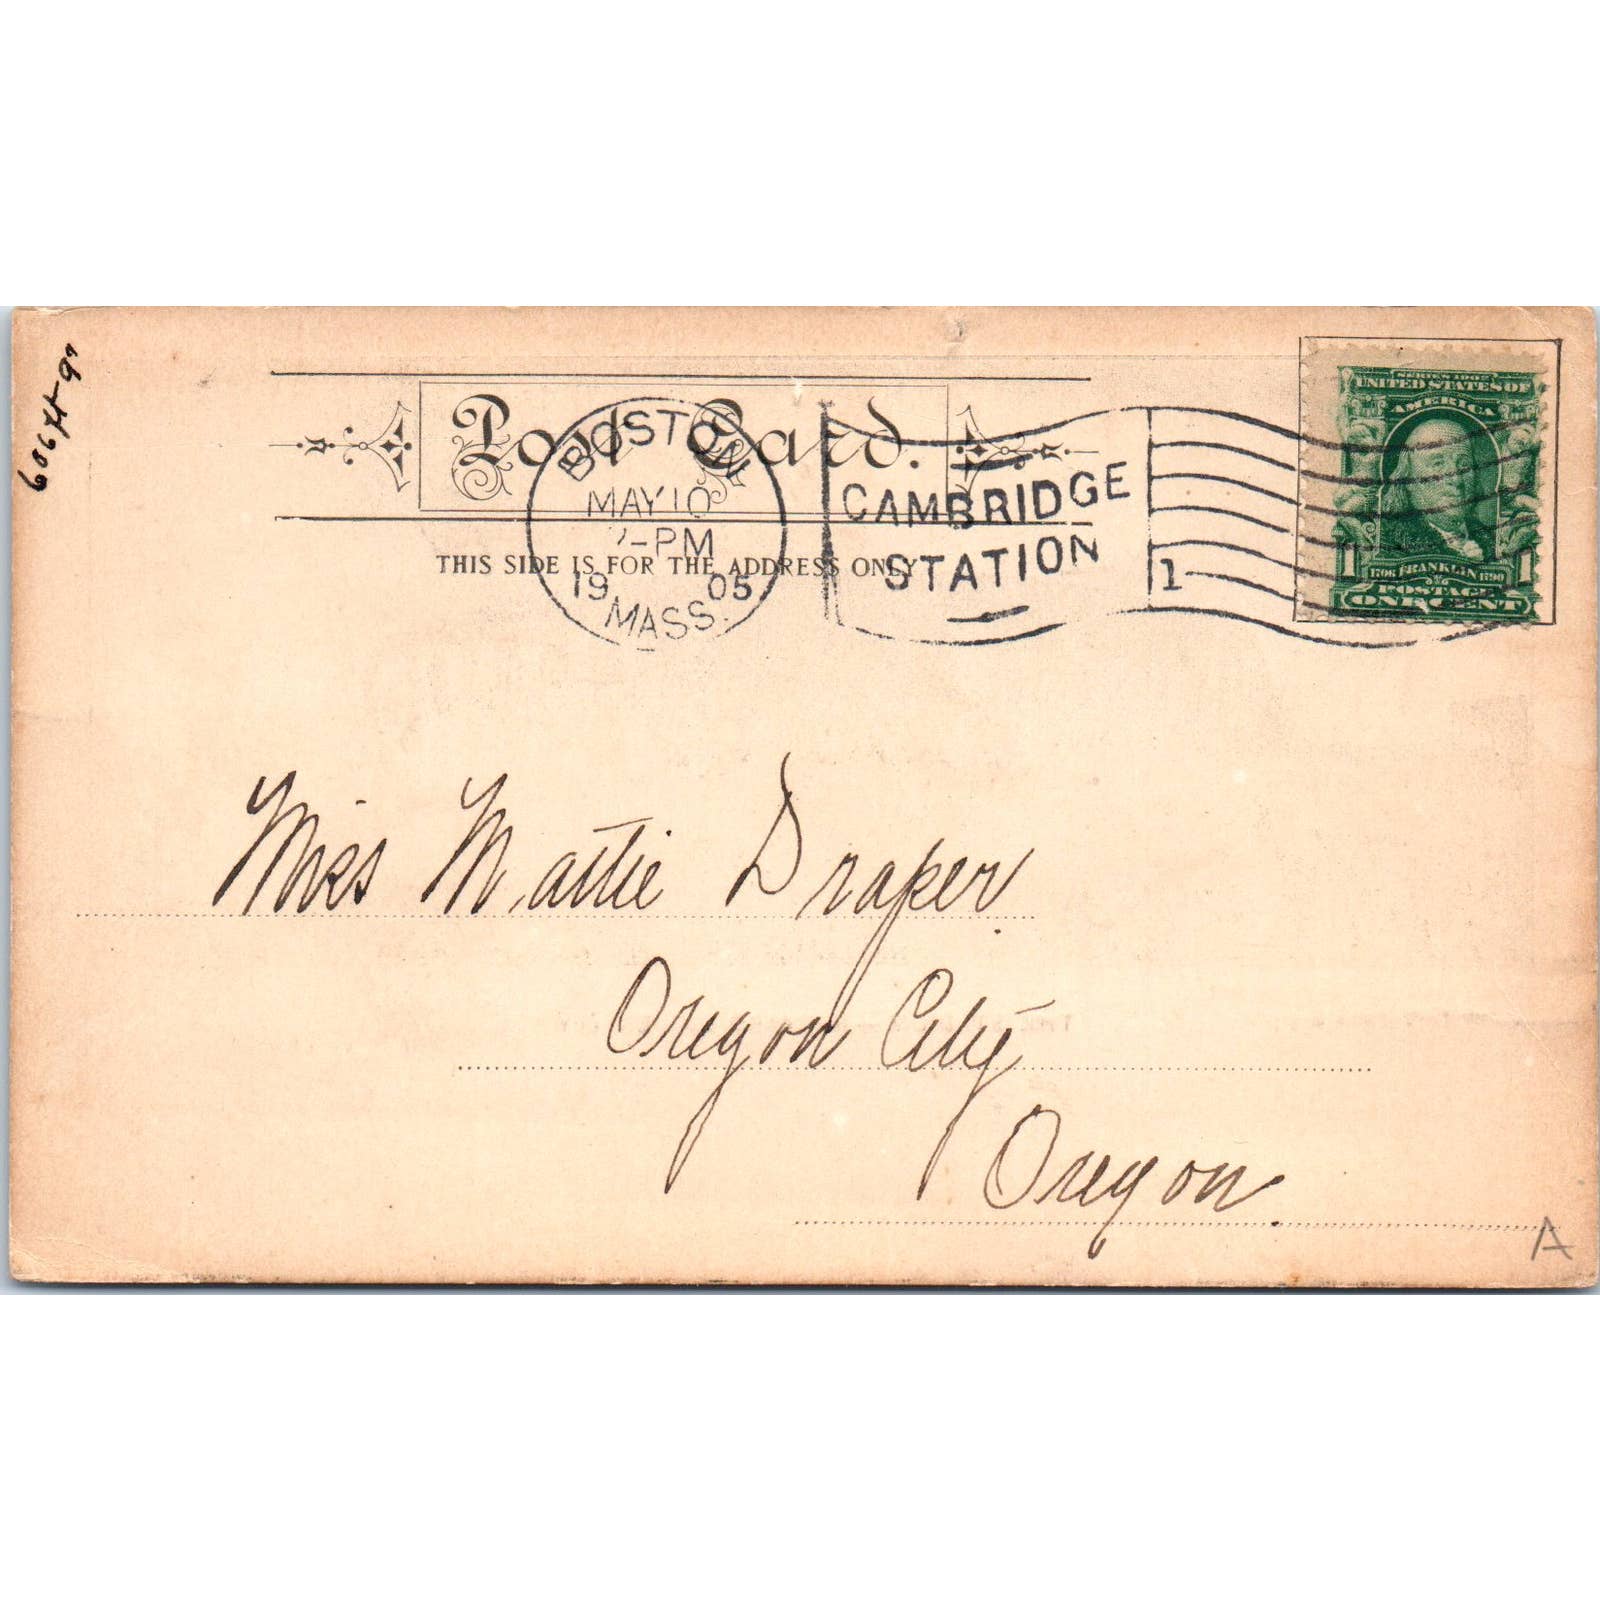 Post Card.
THIS SIDE IS FOR THE ADDRESS ONLY
BOSTON
MAY 10
-PM
19 05
MASS.
CAMBRIDGE
STATION
1
SERIES 1902
UNITED STATES OF
AMERICA
1 1
1706 FRANKLIN 1790
POSTAGE
ONE CENT
Miss Mattie Draper.
Oregon City
Oregon.
A